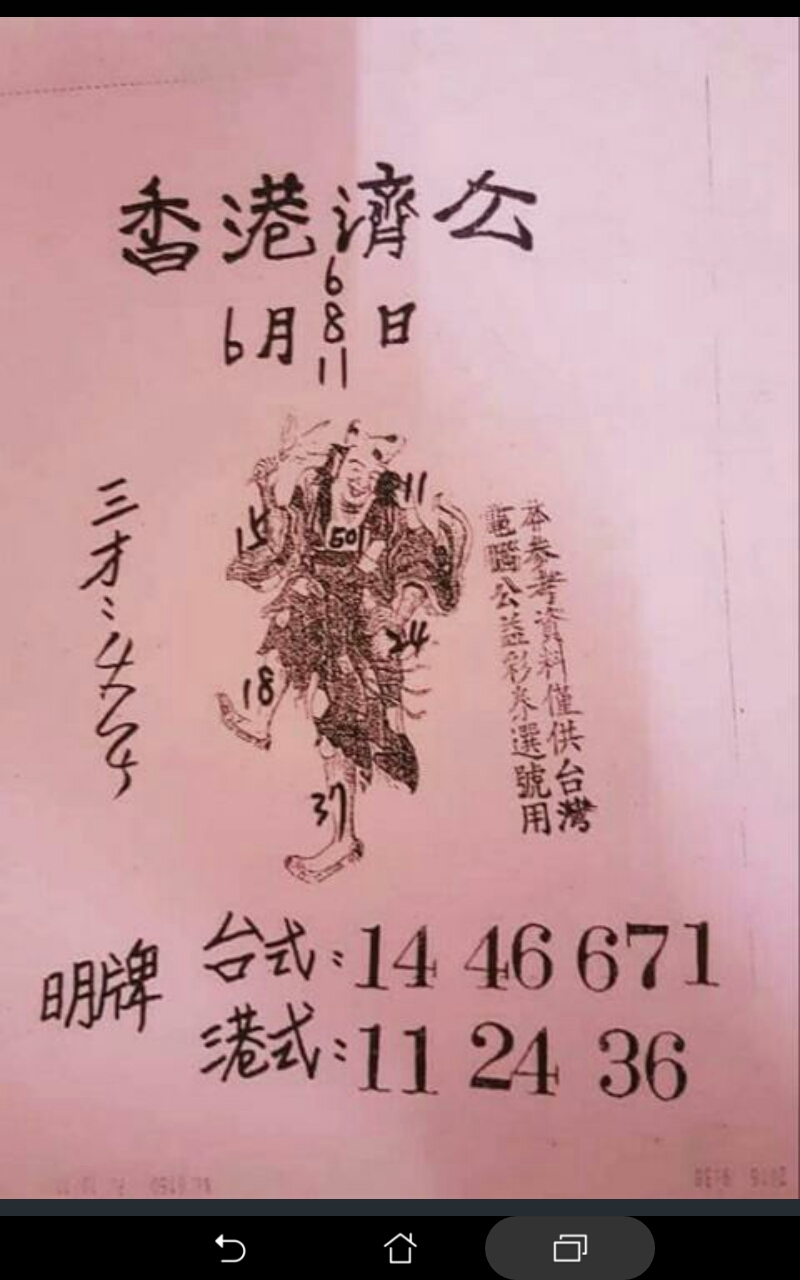 香港濟公
6
6月8日
11
三才:
11
15
50
24
18
37
本參考資料僅供台灣
電腦公益彩券選號用
明牌
台式:14 46 671
港式:11 24 36